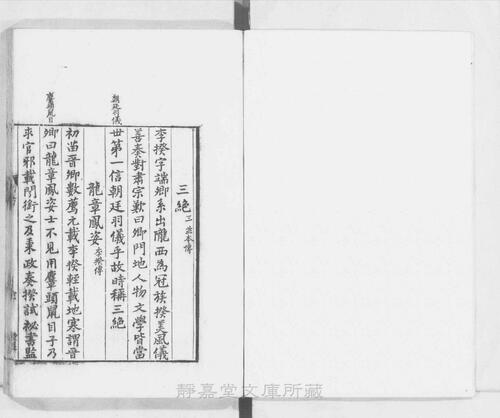 三絶 工並本傳
李揆字端卿系出隴西為冠族揆美風儀
善奏對肅宗歎曰卿門地人物文學皆當
世第一信朝廷羽儀乎故時稱三絶
朝廷羽儀
龍章鳳姿 李揆傳
初苗晉卿數薦元載李揆輕載地寒謂晉
卿曰龍章鳳姿士不見用麞頭鼠目子乃
麞頭鼠目
求官邪載聞銜之及秉政奏揆試祕書監
靜嘉堂文庫所藏